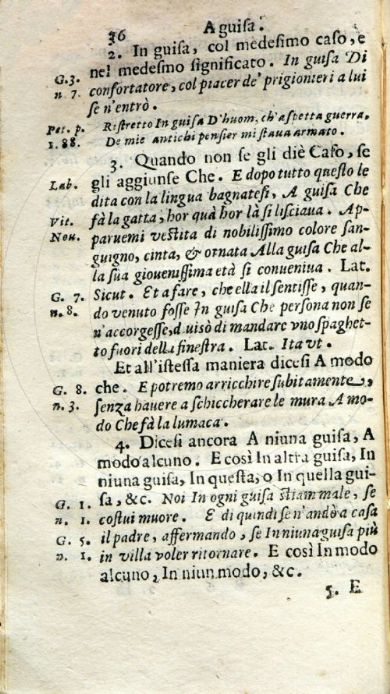 36 A guisa.
2. In guisa, col medesimo caso, e
nel medesmo significato. In guisa Di
G. 3. confortatore, col piacer de' prigionieri a lui
n 7. se n'entrò.
Pet. p. Ristretto In guisa D'huom, ch'aspetta guerra,
1. 88. De mie antichi pensier mi stava armato.
3. Quando non se gli diè Caso, se
Lab. gli aggiunse Che. E dopo tutto questo le
dita con la lingua bagnatesi, A guisa Che
Vit. fà la gatta, hor quà hor là si lisciava. Ap-
Nou. paruemi vestita di nobilissimo colore san-
guigno, cinta, & ornata Alla guisa Che al-
la sua giouenissima età si conueniua. Lat.
G. 7. Sicut. Et a fare, che ella il sentisse, quan-
n. 8. do venuto fosse In guisa Che persona non se
n'accorgesse, d'uisò di mandare vno spaghet-
to fuori della finestra. Lat. Ita vt.
Et all'istessa maniera dicesi A modo
G. 8. che. E potremo arricchire subitamente,
n. 3. senza hauere a schiccherare le mura A mo-
do Che fà la lumaca.
4. Dicesi ancora A niuna guisa, A
modo alcuno. E così In altra guisa, In
niuna guisa, In questa, o In quella gui-
G. 1. sa, &c. Noi In ogni guisa stiam male, se
n. 1. costui muore. E di quindi se n'andò a casa
G. 5. il padre, affermando, se In niuna guisa più
n. 1. in villa voler ritornare. E così In modo
alcuno, In niun modo, &c.
5. E